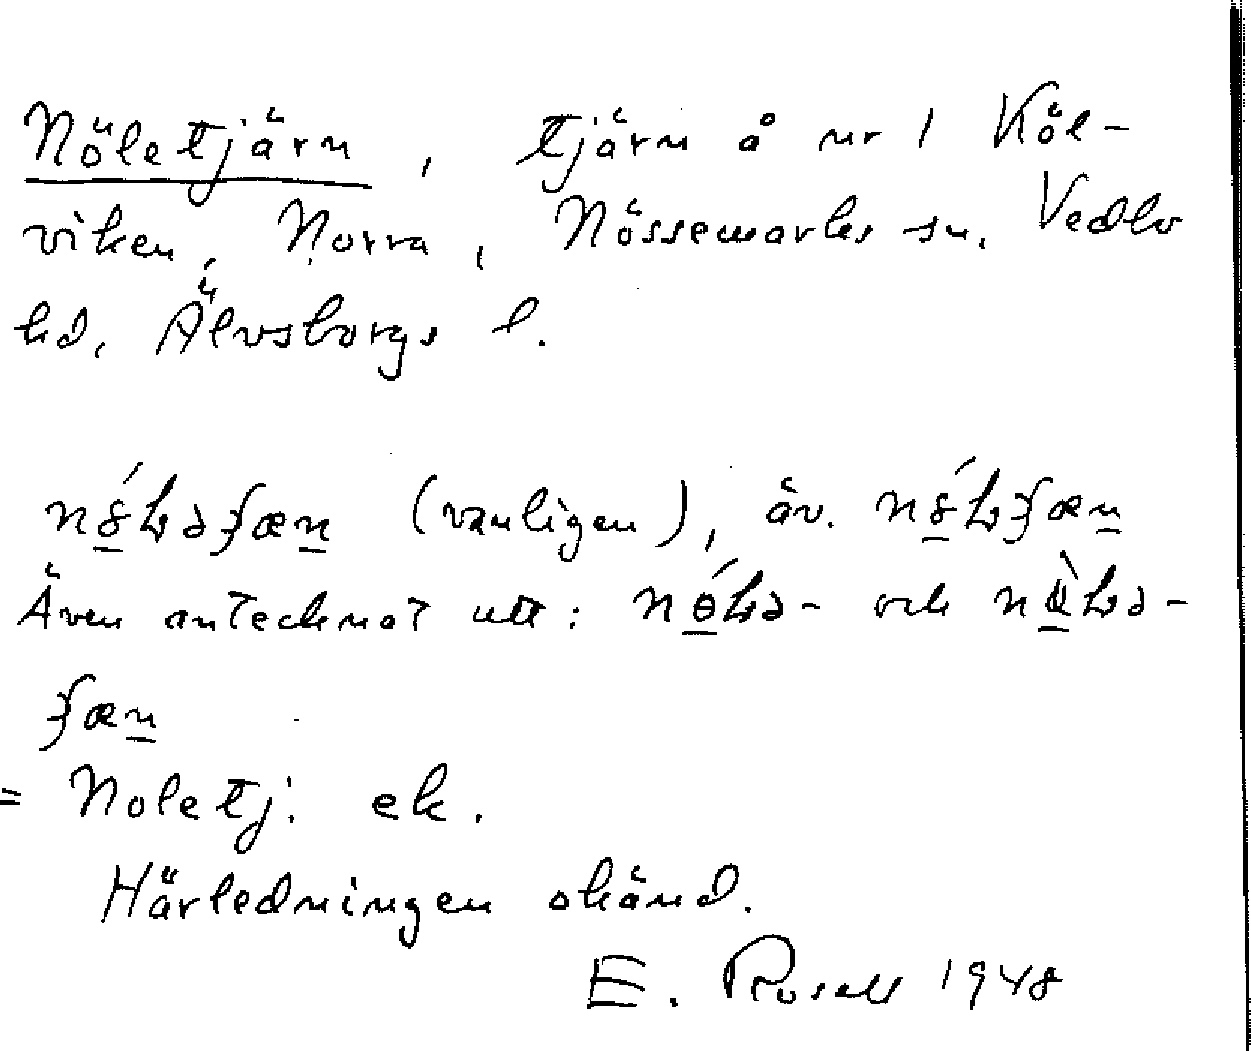 Nöletjärn, tjärn å nr 1 Köl-
viken, Norra, Nössemarks sn. Vedbo
hd, Älvsborgs l.
(vanligen), äv.
Även antecknat utt: och
= Noletj. ek.
Härledningen okänd.
E. Rosell 1948